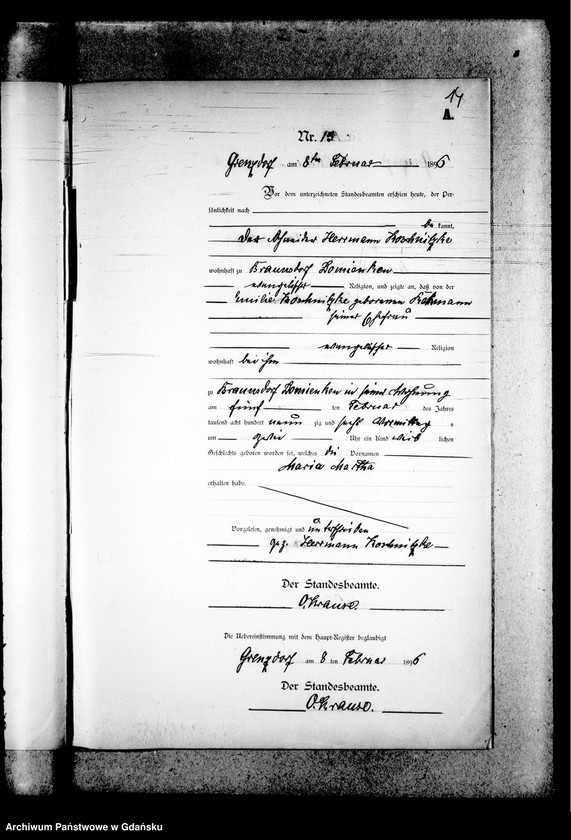 14
A.
Nr. 15
Grenzdorf am 8ten Februar 1896
Vor dem unterzeichneten Standesbeamten erschien heute, der Per-
sönlichkeit nach
be kannt,
Der Schneider Herrmann Koschnitzke
wohnhaft zu Braunsdorf Lomienken
evangelischer Religion, und zeigte an, daß von der
Emilie Koschnitzke geborenen
seiner Ehefrau
evangelischer Religion
wohnhaft bei ihm
zu Braunsdorf Lomienken in seiner Wohnung
am fünf ten Februar des Jahres
tausend acht hundert neun zig und sechs Vormittag s
um zwei Uhr ein Kind weib lichen
Geschlechts geboren worden sei, welches die Vornamen
Maria Martha
erhalten habe.
Vorgelesen, genehmigt und unterschrieben
gez. Herrmann Koschnitzke
Der Standesbeamte.
O. Krause.
Die Uebereinstimmung mit dem Haupt-Register beglaubigt
Grenzdorf am 8 ten Februar 1896
Der Standesbeamte.
O. Krause.
Archiwum Państwowe w Gdańsku